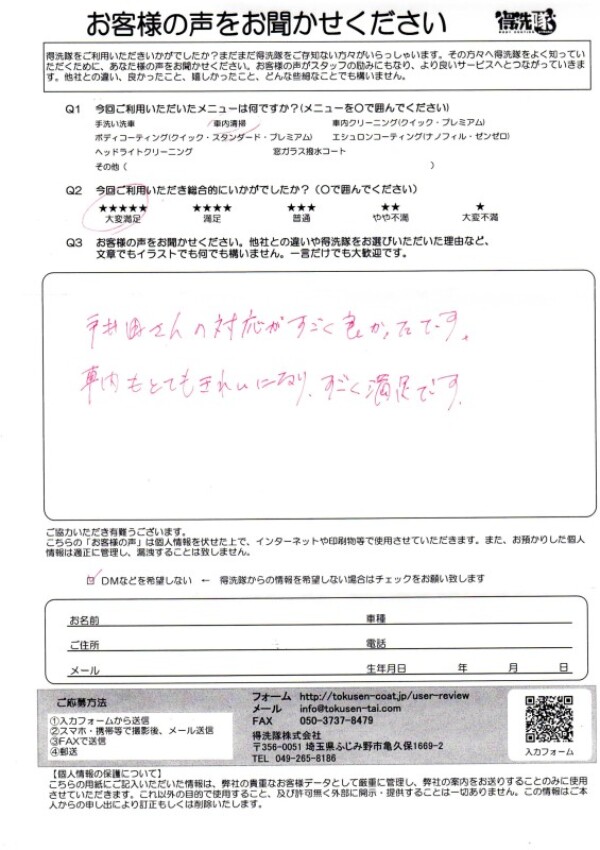 お客様の声をお聞かせください
得洗隊
得洗隊をご利用いただきいかがでしたか?まだまだ得洗隊をご存知ない方々がいらっしゃいます。その方々へ得洗隊をよく知って
いただくために、あなた様の声をお聞かせください。お客様の声がスタッフの励みにもなり、より良いサービスへとつながっていきま
す。他社との違い、良かったこと、嬉しかったこと、どんな些細なことでも構いません。
Q1 今回ご利用いただいたメニューは何ですか?(メニューを〇で囲んでください)
手洗い洗車 車内清掃 車内クリーニング(クイック・プレミアム)
ボディコーティング(クイック・スタンダード・プレミアム) エシュロンコーティング(ナノフィル・ゼンゼロ)
ヘッドライトクリーニング 窓ガラス撥水コート
その他( )
Q2 今回ご利用いただき総合的にいかがでしたか?(〇で囲んでください)
★★★★★ ★★★★ ★★★ ★★ ★
大変満足 満足 普通 やや不満 大変不満
Q3 お客様の声をお聞かせください。他社との違いや得洗隊をお選びいただいた理由など、
文章でもイラストでも何でも構いません。一言だけでも大歓迎です。
戸井田さんの対応がすごく良かったです。
車内もとてもきれいになり、すごく満足です。
ご協力いただき有難うございます。
こちらの「お客様の声」は個人情報を伏せた上で、インターネットや印刷物等で使用させていただきます。また、お預かりした個人
情報は適正に管理し、漏洩することは致しません。
DMなどを希望しない ← 得洗隊からの情報を希望しない場合はチェックをお願い致します
お名前 車種
ご住所 電話
メール 生年月日 年 月 日
ご応募方法
①入力フォームから送信
②スマホ・携帯等で撮影後、メール送信
③FAXで送信
④郵送
フォーム http://tokusen-coat.jp/user-review
メール info@tokusen-tai.com
FAX 050-3737-8479
得洗隊株式会社
〒356-0051 埼玉県ふじみ野市亀久保1669-2
TEL 049-265-8186
入力フォーム
【個人情報の保護について】
こちらの用紙にご記入いただいた情報は、弊社の貴重なお客様データとして厳重に管理し、弊社の案内をお送りすることのみに使用
させていただきます。これ以外の目的で使用すること、及び許可無く外部に開示・提供することは一切ありません。この情報はご本
人からの申し出により訂正もしくは削除いたします。